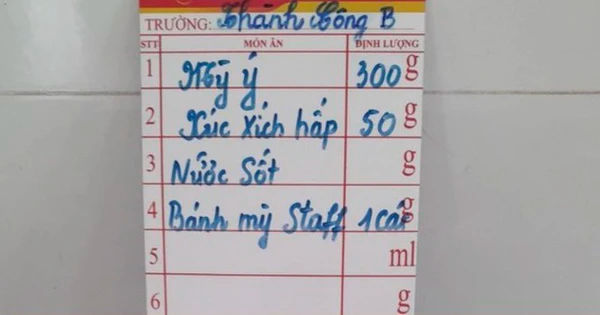 TRƯỜNG: Thành Công B
STT MÓN ĂN ĐỊNH LƯỢNG
1 Mỳ ý 300 g
2 Xúc xích hấp 50 g
3 Nước sốt g
4 Bánh mỳ Staff 1 cái g
5 ml
6 g